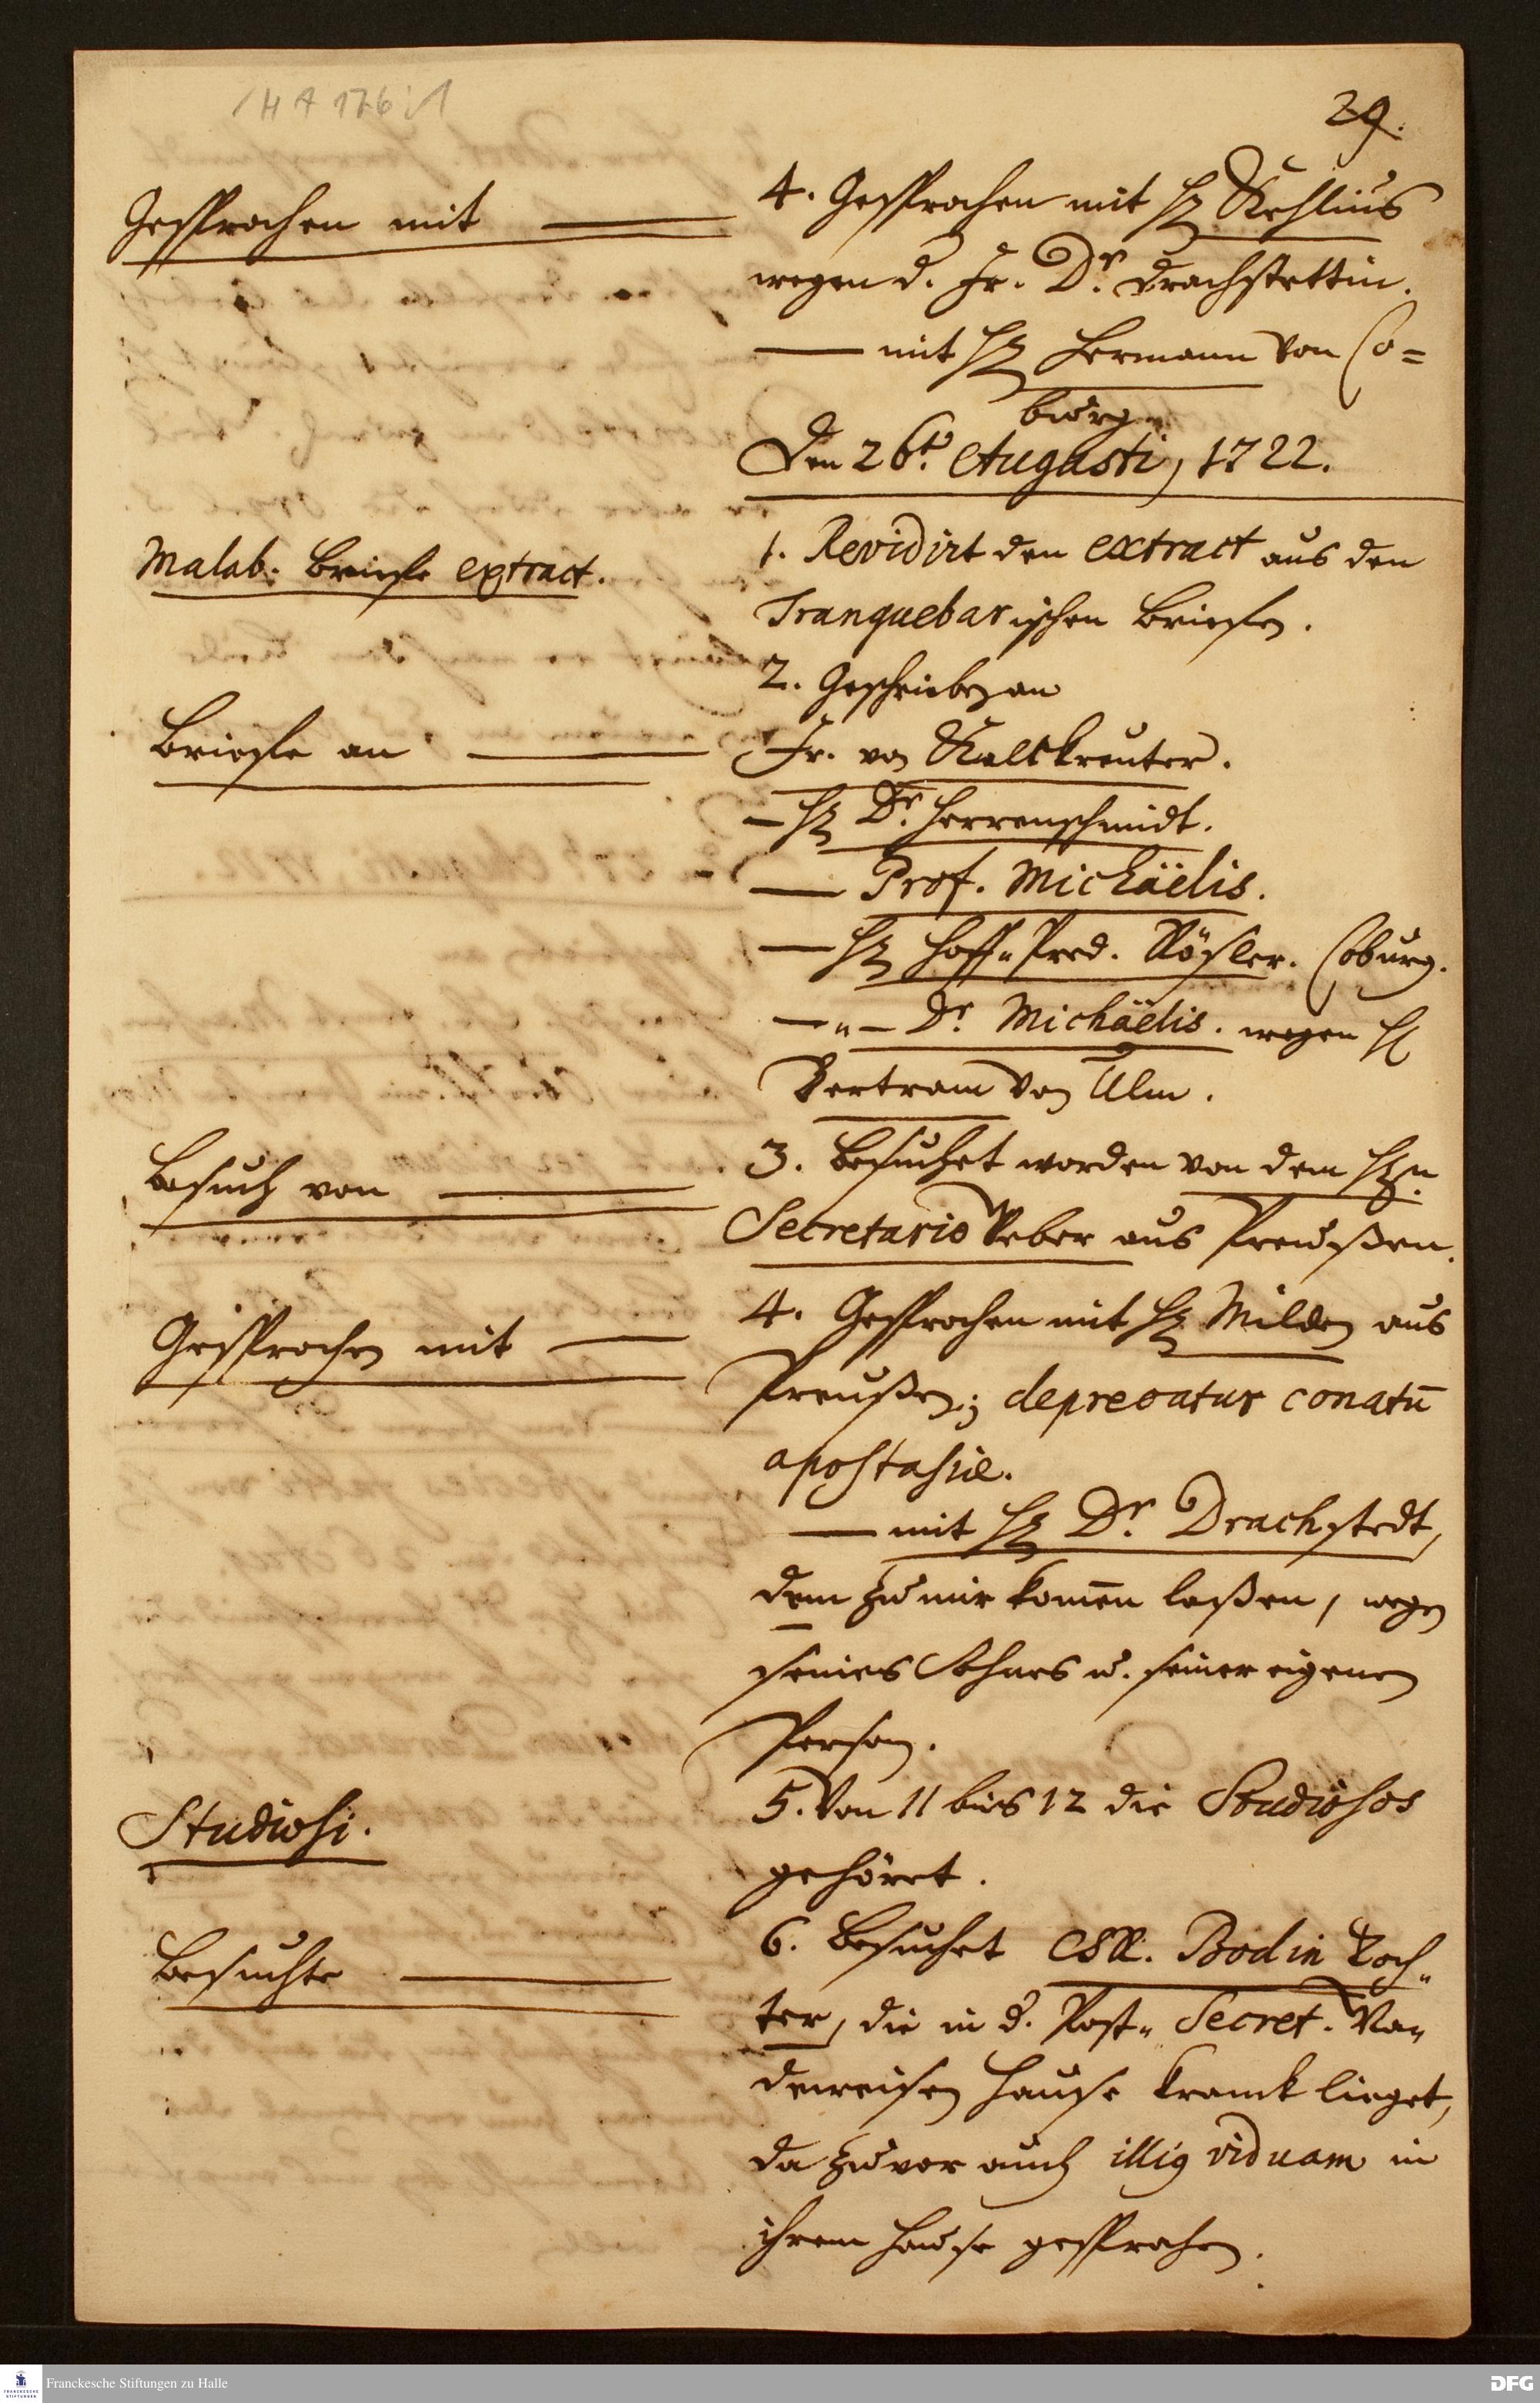 /H A 176:1
29.
Gesprochen mit
4. Gesprochen mit H. Kehlius
wegen d. Fr. Dr. Drachstettin.
— mit H. Hermann von Co=
burg
Den 26t. Augusti, 1722.
Malab. Briefe extract.
1. Revidirt den extract aus den
Tranquebarischen Briefen.
2. Geschrieben an
Briefe an
Fr. von Kalckreuter.
— H. Dr. Herrenschmidt.
— Prof. Michäelis.
— H. Hoff-Pred. Rösler. Coburg.
— " — Dr. Michäelis. wegen H.
Bertram von Ulm.
Besuch von
3. Besuchet worden von dem H.n
Secretario Weber aus Preußen.
Gesprochen mit
4. Gesprochen mit H. Milden aus
Preußen; deprecatur conatū
apostasiæ.
— mit H. Dr. Drachstedt,
dem zu mir kom̄en laßen, wegen
seines Sohnes u. seiner eigenen
Person.
Studiosi.
5. Von 11 bis 12 die Studiosos
gehöret.
Besuchte
6. Besuchet Bodin Toch-
ter, die in d. Post-Secret. Va-
deweisen Hause kranck lieget,
da zuvor auch viduam in
ihrem Hause gesprochen.
Franckesche Stiftungen zu Halle
DFG